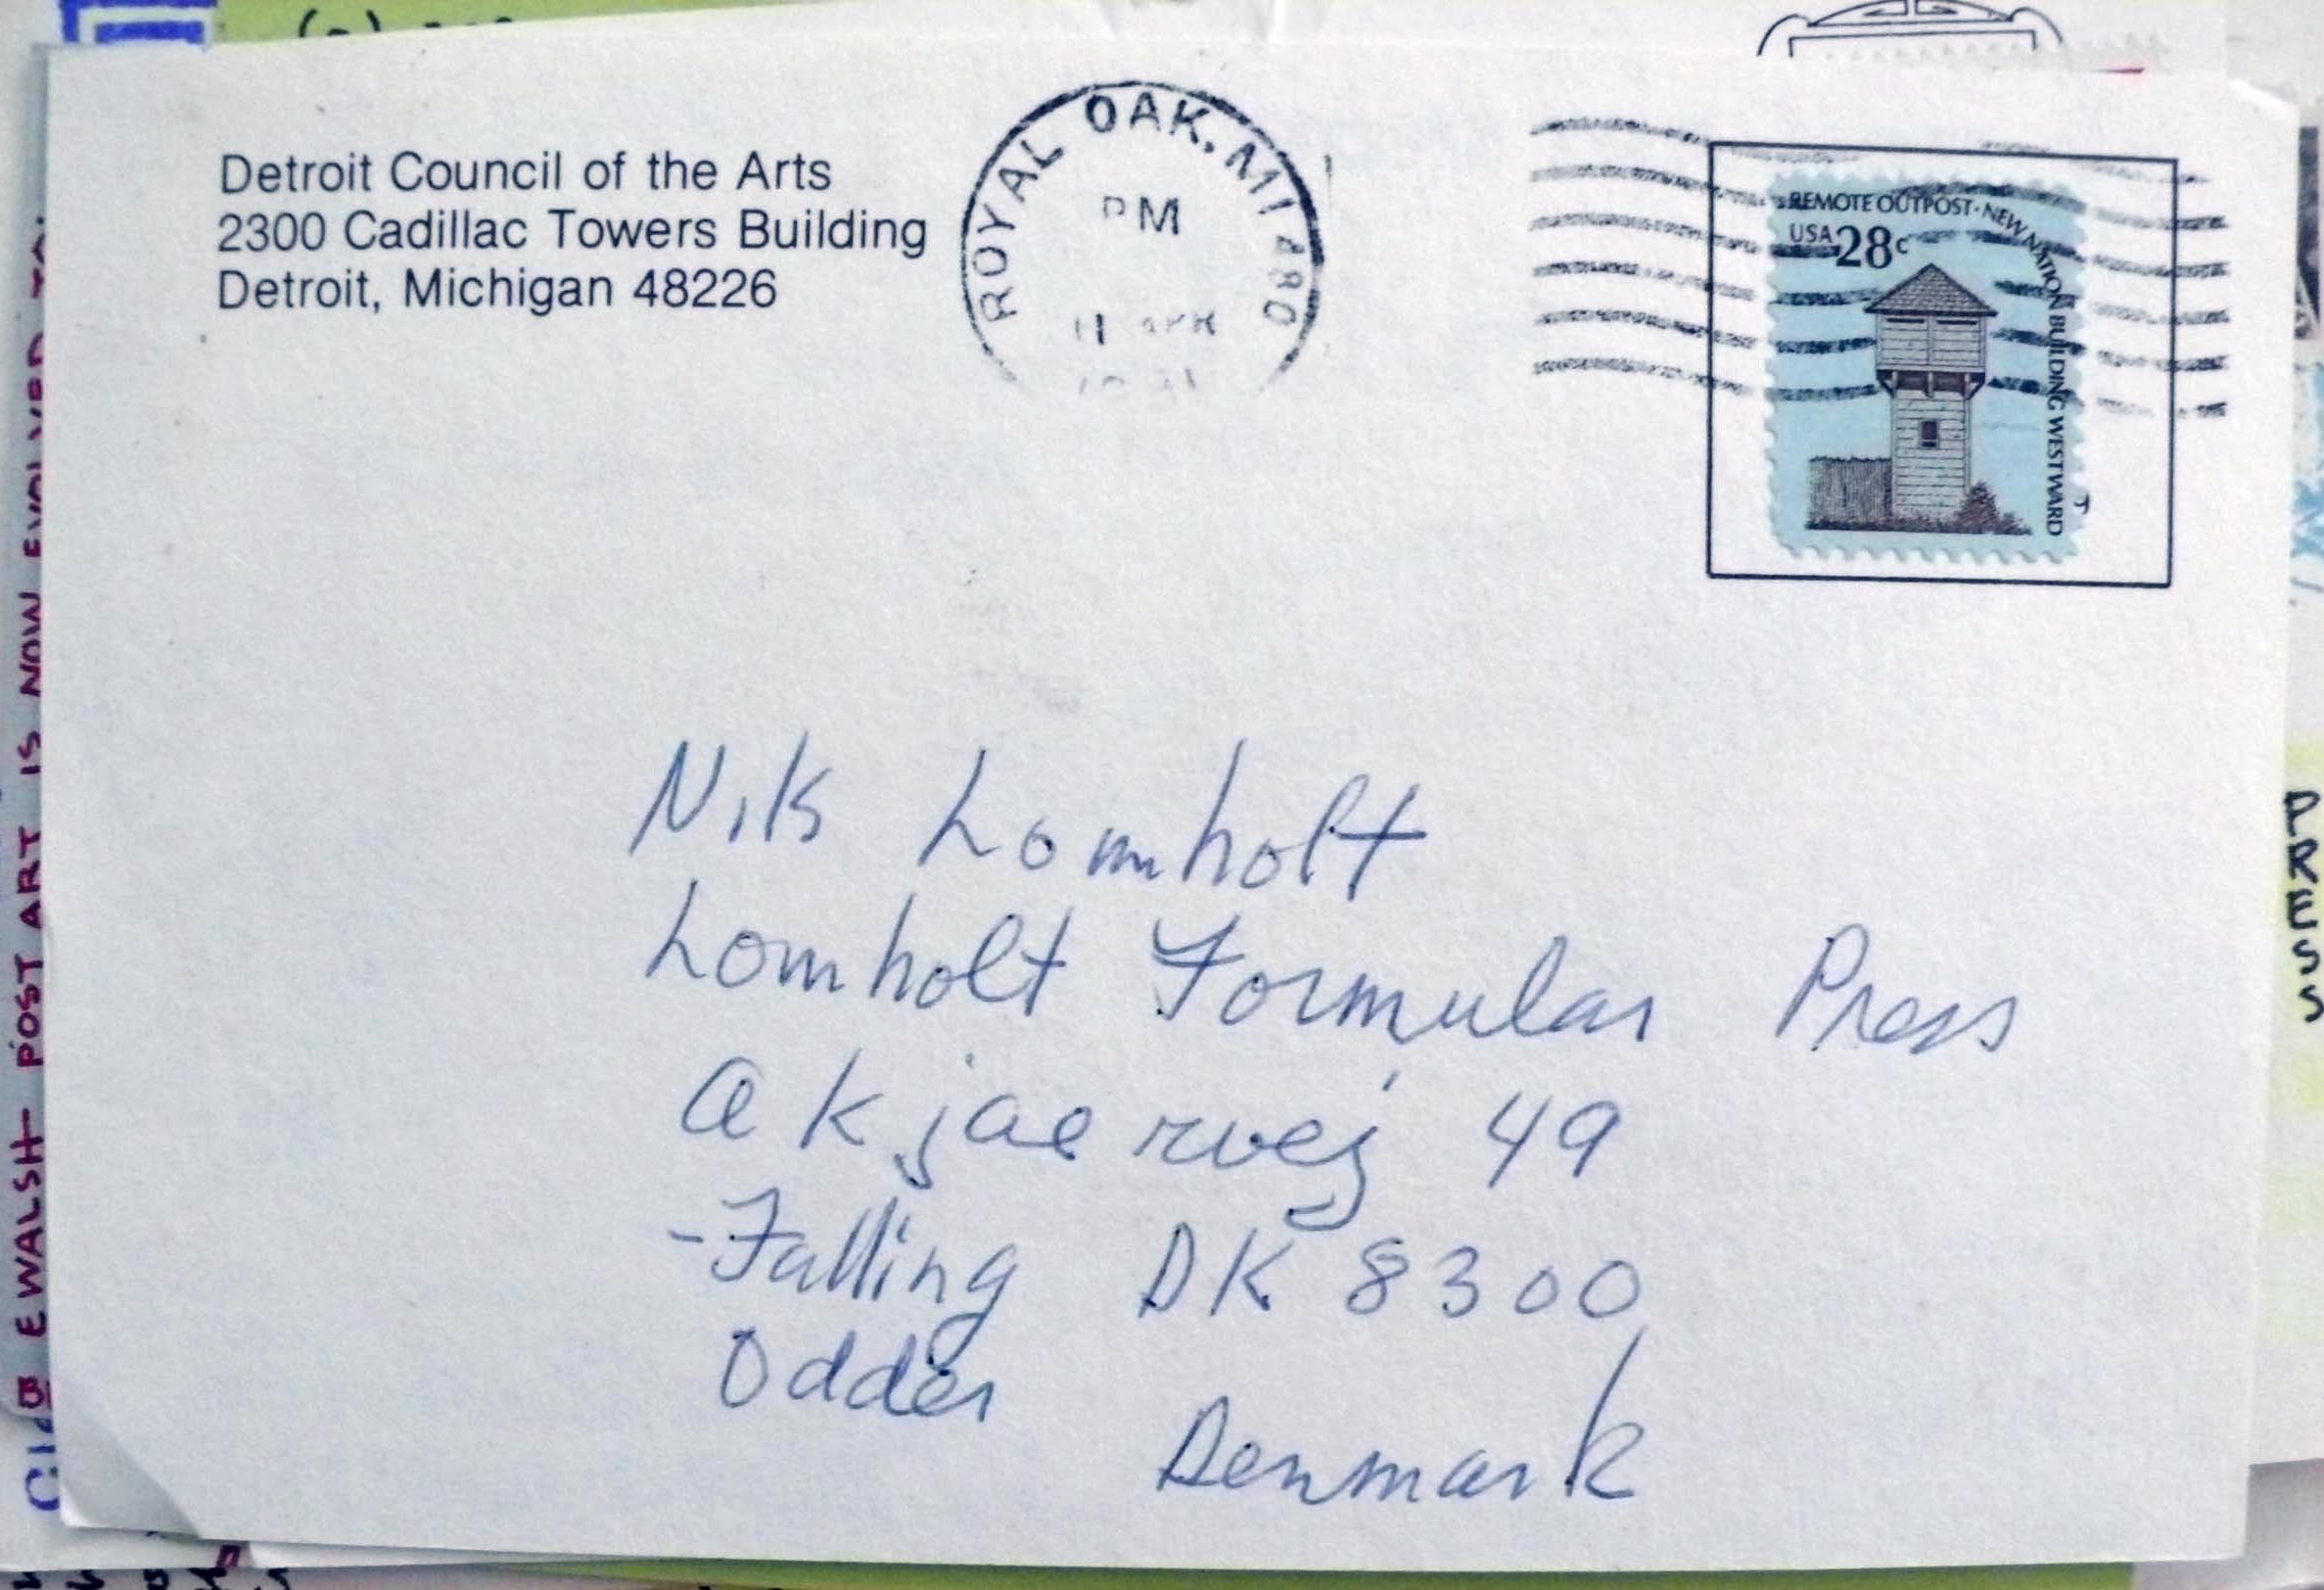 Detroit Council of the Arts
2300 Cadillac Towers Building
Detroit, Michigan 48226
ROYAL OAK, MI
PM
11 APR
REMOTE OUTPOST · NEW NATION BUILDING WESTWARD
USA 28c
Nik Lomholt
Lomholt Formular Press
Akjaervej 49
-Falling DK 8300
Odder
Denmark
EWALSH POST ART IS NOW EVOLVED
PRESS